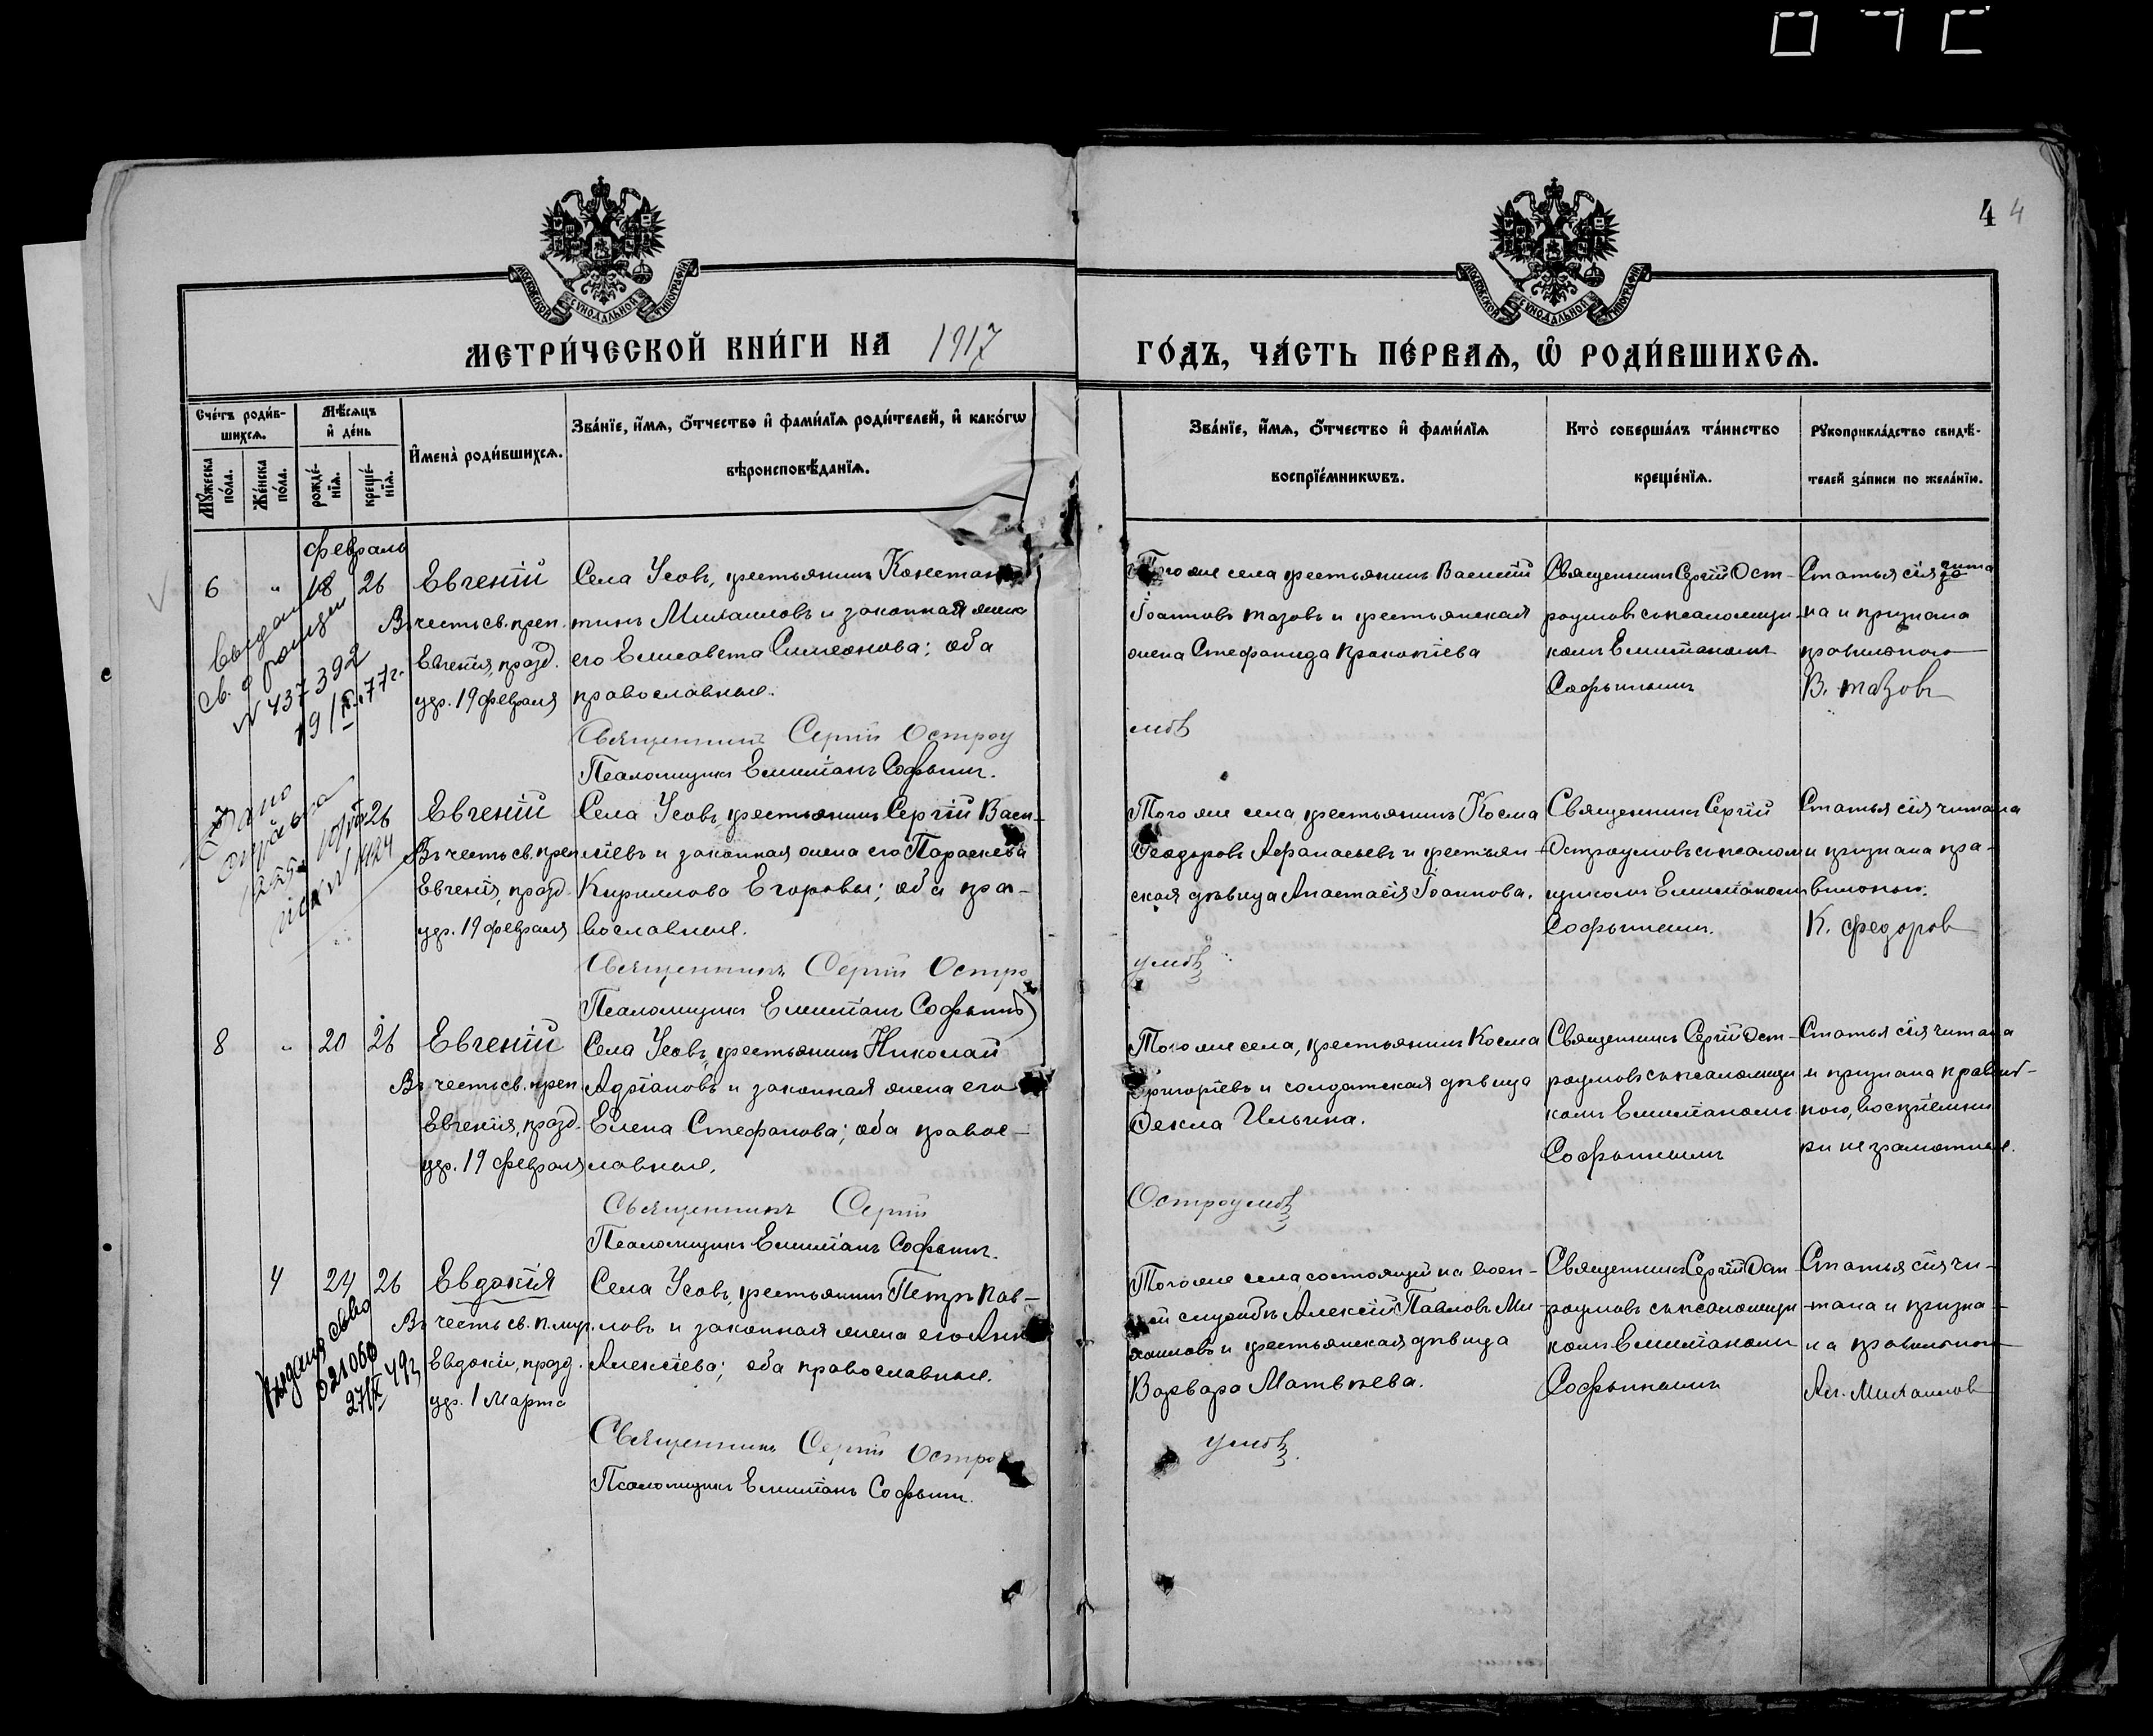 4 4
МОСКОВСКОЙ СѴНОДАЛЬНОЙ ТИПОГРАФІИ
МОСКОВСКОЙ СѴНОДАЛЬНОЙ ТИПОГРАФІИ
МЕТРИ́ЧЕСКОЙ КНИ́ГИ НА 1917
ГО́ДЪ, ЧА́СТЬ ПЕ́РВАѦ, Ѽ РОДИ́ВШИХСѦ.
Сче́тъ роди́в-
шихсѧ.
Мꙋ́жеска по́ла.
Же́нска по́ла.
Мѣ́сѧцъ
и҆ де́нь
рожде́-
нїѧ.
креще́-
нїѧ.
И҆мена̀ роди́вшихсѧ.
Зва́нїе, и҆́мѧ, ѻ҆́тчество и҆ фами́лїѧ роди́телей, и҆ како́гѡ
вѣроисповѣ́данїѧ.
Зва́нїе, и҆́мѧ, ѻ҆́тчество и҆ фами́лїѧ
воспрїе́мникѡвъ.
Кто̀ соверша́лъ та́инство
креще́нїѧ.
Рꙋкоприкла́дство свидѣ́-
телей за́писи по жела́нїю.
Февраль
6 " 18 26
Евгеній
Въ честь св. преп.
Евгенія, празд.
удр. 19 февраля
Села Усовъ, крестьянинъ Констан-
тинъ Михаиловъ и законная жена
его Елисавета Симеонова; оба
православные.
Священникъ Сергій Остроу
Псаломщикъ Емиліанъ Софьинъ.
Того же села крестьянинъ Василій
Іоанновъ Мазовъ и крестьянская
жена Стефанида Прокопіева
мовъ
Священникъ Сергій Ост-
роумовъ съ псаломщи-
комъ Емиліаномъ
Софьинымъ
Статья сія чита
на и признана
правильною
В. Мазовъ
№ 437392
26
Евгеній
Въ честь св. преп
Евгенія, празд.
удр. 19 февраля
Села Усовъ, крестьянинъ Сергій Васи-
ліевъ и законная жена его Параскева
Кириллова Егоровы; оба пра-
вославные.
Священникъ Сергій Остро
Псаломщикъ Емиліанъ Софьинъ
Того же села, крестьянинъ Косма
Ѳеодоровъ Афанасьевъ и крестьян-
ская дѣвица Анастасія Іоаннова.
умовъ
Священникъ Сергій
Остроумовъ съ псалом
щикомъ Емиліаномъ
Софьинымъ.
Статья сія читана
и признана пра-
вильною.
К. Федоров
8 " 20 26
Евгеній
Въ честь св. преп
Евгенія, празд.
удр. 19 февраля
Села Усовъ, крестьянинъ Николай
Адріановъ и законная жена его
Елена Стефанова; оба правос-
лавные.
Священникъ Сергій
Псаломщикъ Емиліанъ Софьинъ.
Того же села, крестьянинъ Косма
Григоріевъ и солдатская дѣвица
Ѳекла Ильина.
Остроумовъ
Священникъ Сергій Ост-
роумовъ съ псаломщи
комъ Емиліаномъ
Софьинымъ
Статья сія читана
и признана правиль-
ною, воспріемни
ки неграмотные.
4 24 26
Евдокія
Въ честь св. п. муч.
Евдокіи, празд.
удр. 1 Марта
Села Усовъ, крестьянинъ Петръ Пав-
ловъ и законная жена его Анна
Алексіева; оба православные.
Священникъ Сергій Остро
Псаломщикъ Емиліанъ Софьинъ.
Того же села, состоящій на воен-
ной службѣ Алексій Павловъ Ми-
хаиловъ и крестьянская дѣвица
Варвара Матвѣева.
умовъ.
Священникъ Сергій Ост
роумовъ съ псаломщи
комъ Емиліаномъ
Софьинымъ
Статья сія чи-
тана и призна-
на правильною
Ал. Михаилов